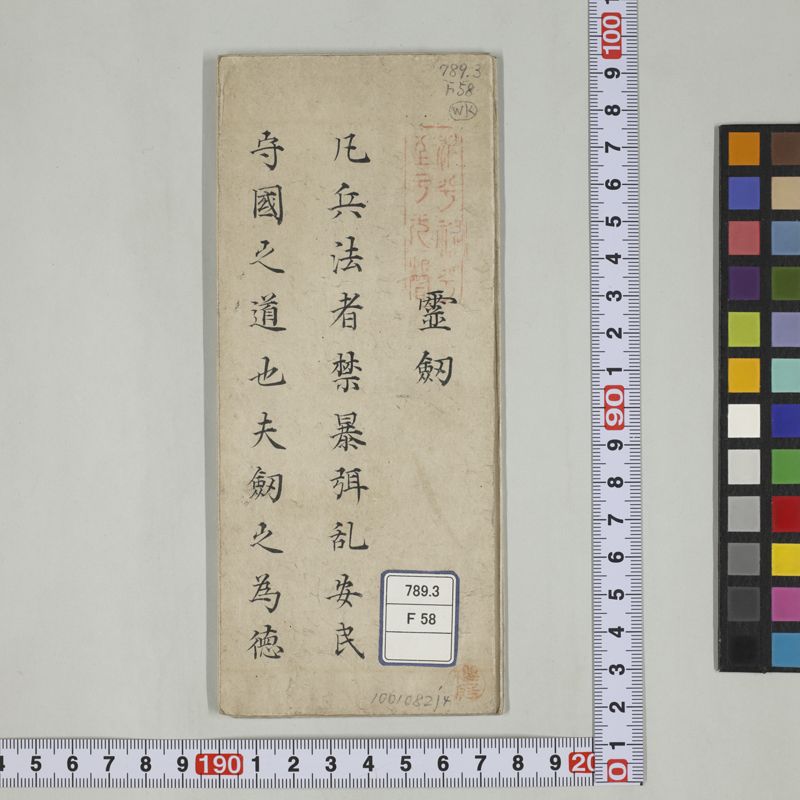 789.3
F58
WK
霊劔
凡兵法者禁暴弭乱安民
守國之道也夫劔之為徳
789.3
F 58
100108214
4 5 6 7 8 9 190 1 2 3 4 5 6 7 8 9 20
100 9 8 7 6 5 4 3 2 1 90 9 8 7 6 5 4 3 2 1 0